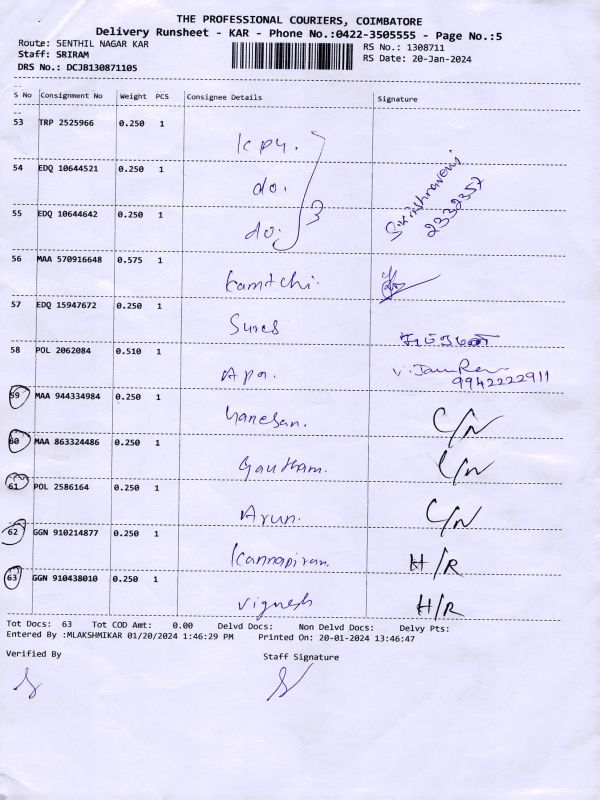 THE PROFESSIONAL COURIERS, COIMBATORE
Delivery Runsheet - KAR - Phone No.:0422-3505555 - Page No.:5
Route: SENTHIL NAGAR KAR RS No.: 1308711
Staff: SRIRAM RS Date: 20-Jan-2024
DRS No.: DCJB130871105
S No Consignment No Weight PCS Consignee Details Signature
53 TRP 2525966 0.250 1
KPY.
54 EDQ 10644521 0.250 1
do.
55 EDQ 10644642 0.250 1
do. 3
2332357
56 MAA 570916648 0.575 1
Kamtchi.
57 EDQ 15947672 0.250 1
Sures
58 POL 2062084 0.510 1
Apo. V. JamRan
9942222911
59 MAA 944334984 0.250 1
Ganesan. C/N
60 MAA 863324486 0.250 1
Gautham. C/N
61 POL 2586164 0.250 1
Arun. C/N
62 GGN 910214877 0.250 1
Kannapiran. H/R
63 GGN 910438010 0.250 1
Vignesh H/R
Tot Docs: 63 Tot COD Amt: 0.00 Delvd Docs: Non Delvd Docs: Delvy Pts:
Entered By :MLAKSHMIKAR 01/20/2024 1:46:29 PM Printed On: 20-01-2024 13:46:47
Verified By Staff Signature